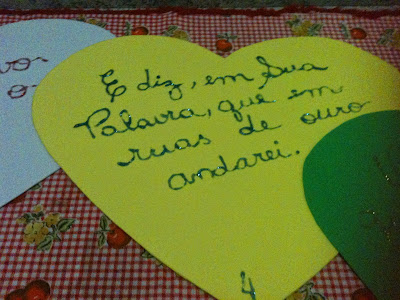 E diz, em Sua
Palavra, que em
ruas de ouro
andarei.
4